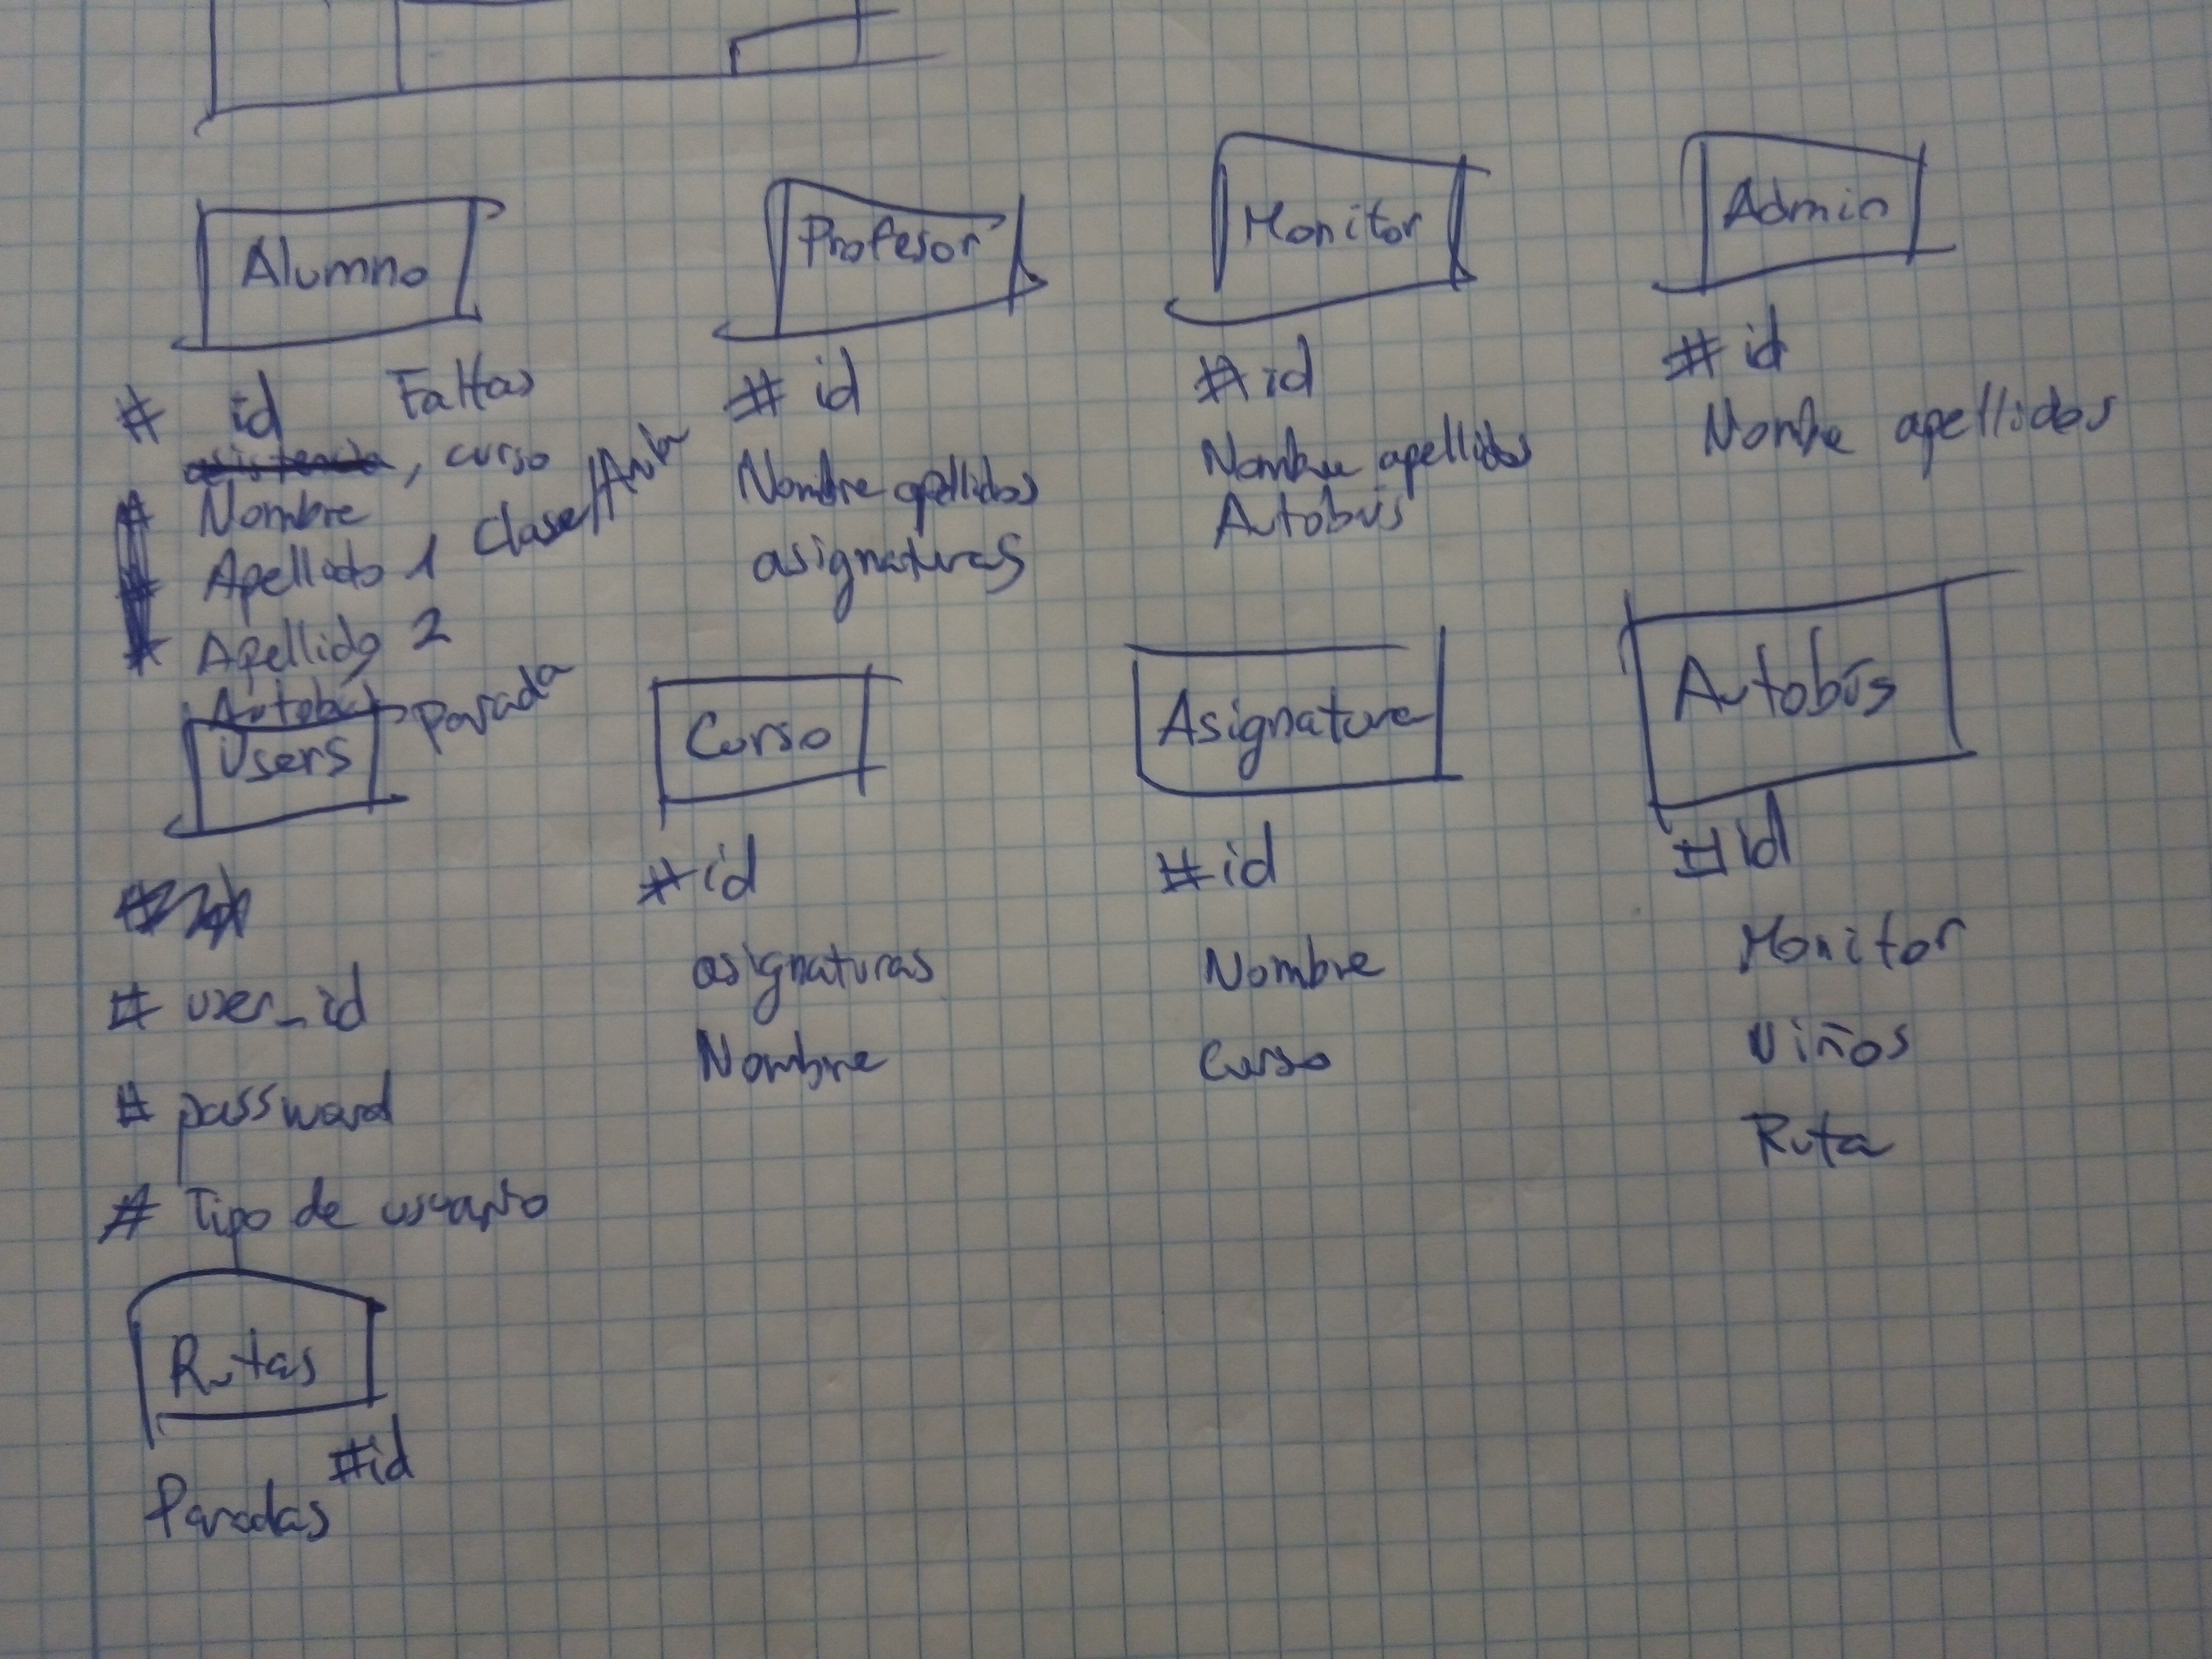 Alumno
# id Faltas
, curso
# Nombre
# Apellido 1 Clase/Aula
# Apellido 2
Autobús parada
Profesor
# id
Nombre apellidos
asignaturas
Monitor
# id
Nombre apellidos
Autobús
Admin
# id
Nombre apellidos
Users
# user_id
# password
# Tipo de usuario
Curso
# id
asignaturas
Nombre
Asignatura
# id
Nombre
Curso
Autobús
# id
Monitor
Niños
Ruta
Rutas
# id
Paradas